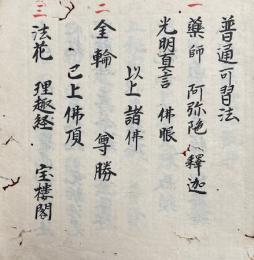 普通可習法
一 藥師 阿弥陁 釋迦
光明真言 佛眼
以上諸佛
二 金輪 尊勝
已上佛頂
三 法花 理趣経 宝楼閣